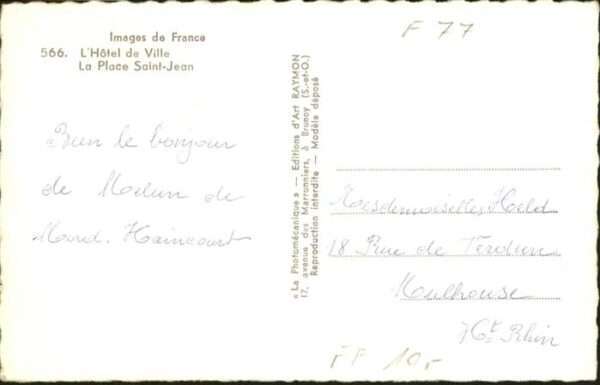 Images de France
566. L'Hôtel de Ville
La Place Saint-Jean
Bien le bonjour
de Melun de
Haincourt
« La Photomécanique » — Editions d'Art RAYMON
17, avenue des Marronniers, à Brunoy (S.-et-O.)
Reproduction interdite — Modèle déposé
F 77
Mesdemoiselles Hoeld
18 Rue de Verdun
Mulhouse
Ht Rhin
FF 10,-